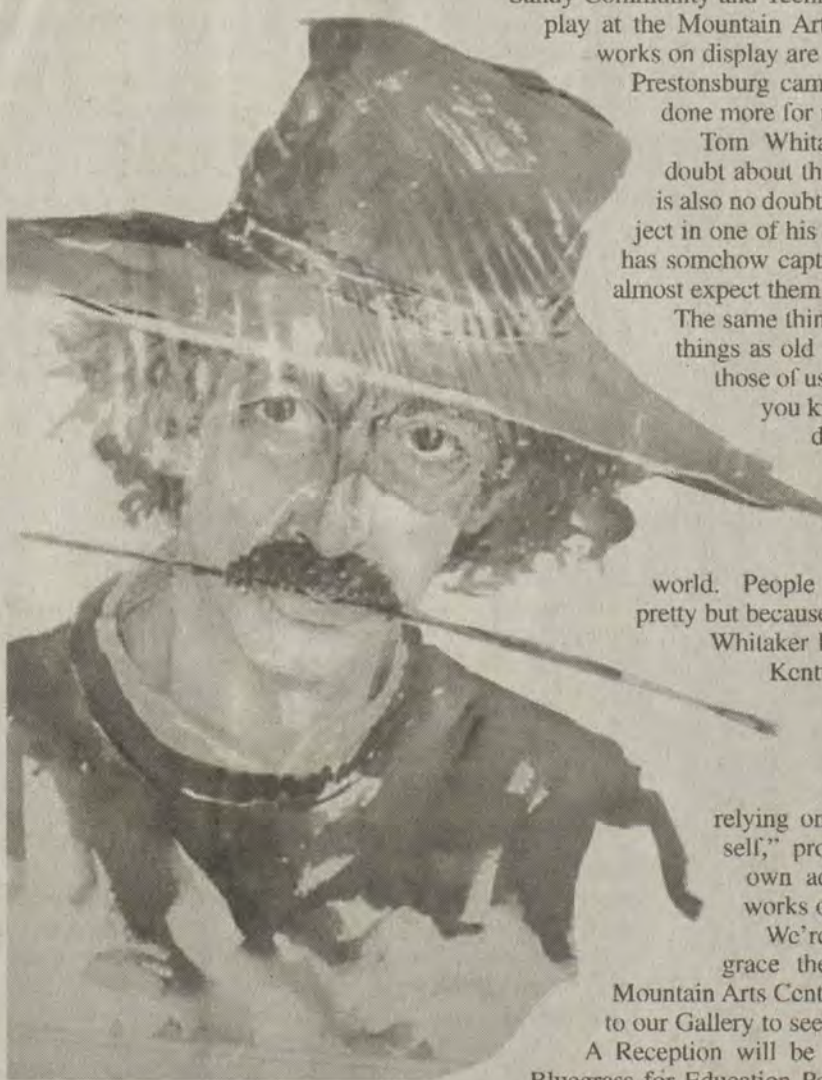 Sandy Community and Tech
play at the Mountain Art
works on display are
Prestonsburg cam
done more for
Tom Whita
doubt about th
is also no doubt
ject in one of his
has somehow capt
almost expect them
The same thin
things as old
those of us
you k
d
world. People
pretty but because
Whitaker
Kent
relying or
self," pro
own ac
works o
We're
grace the
Mountain Arts Cent
to our Gallery to see
A Reception will be
Bluegrass for Education